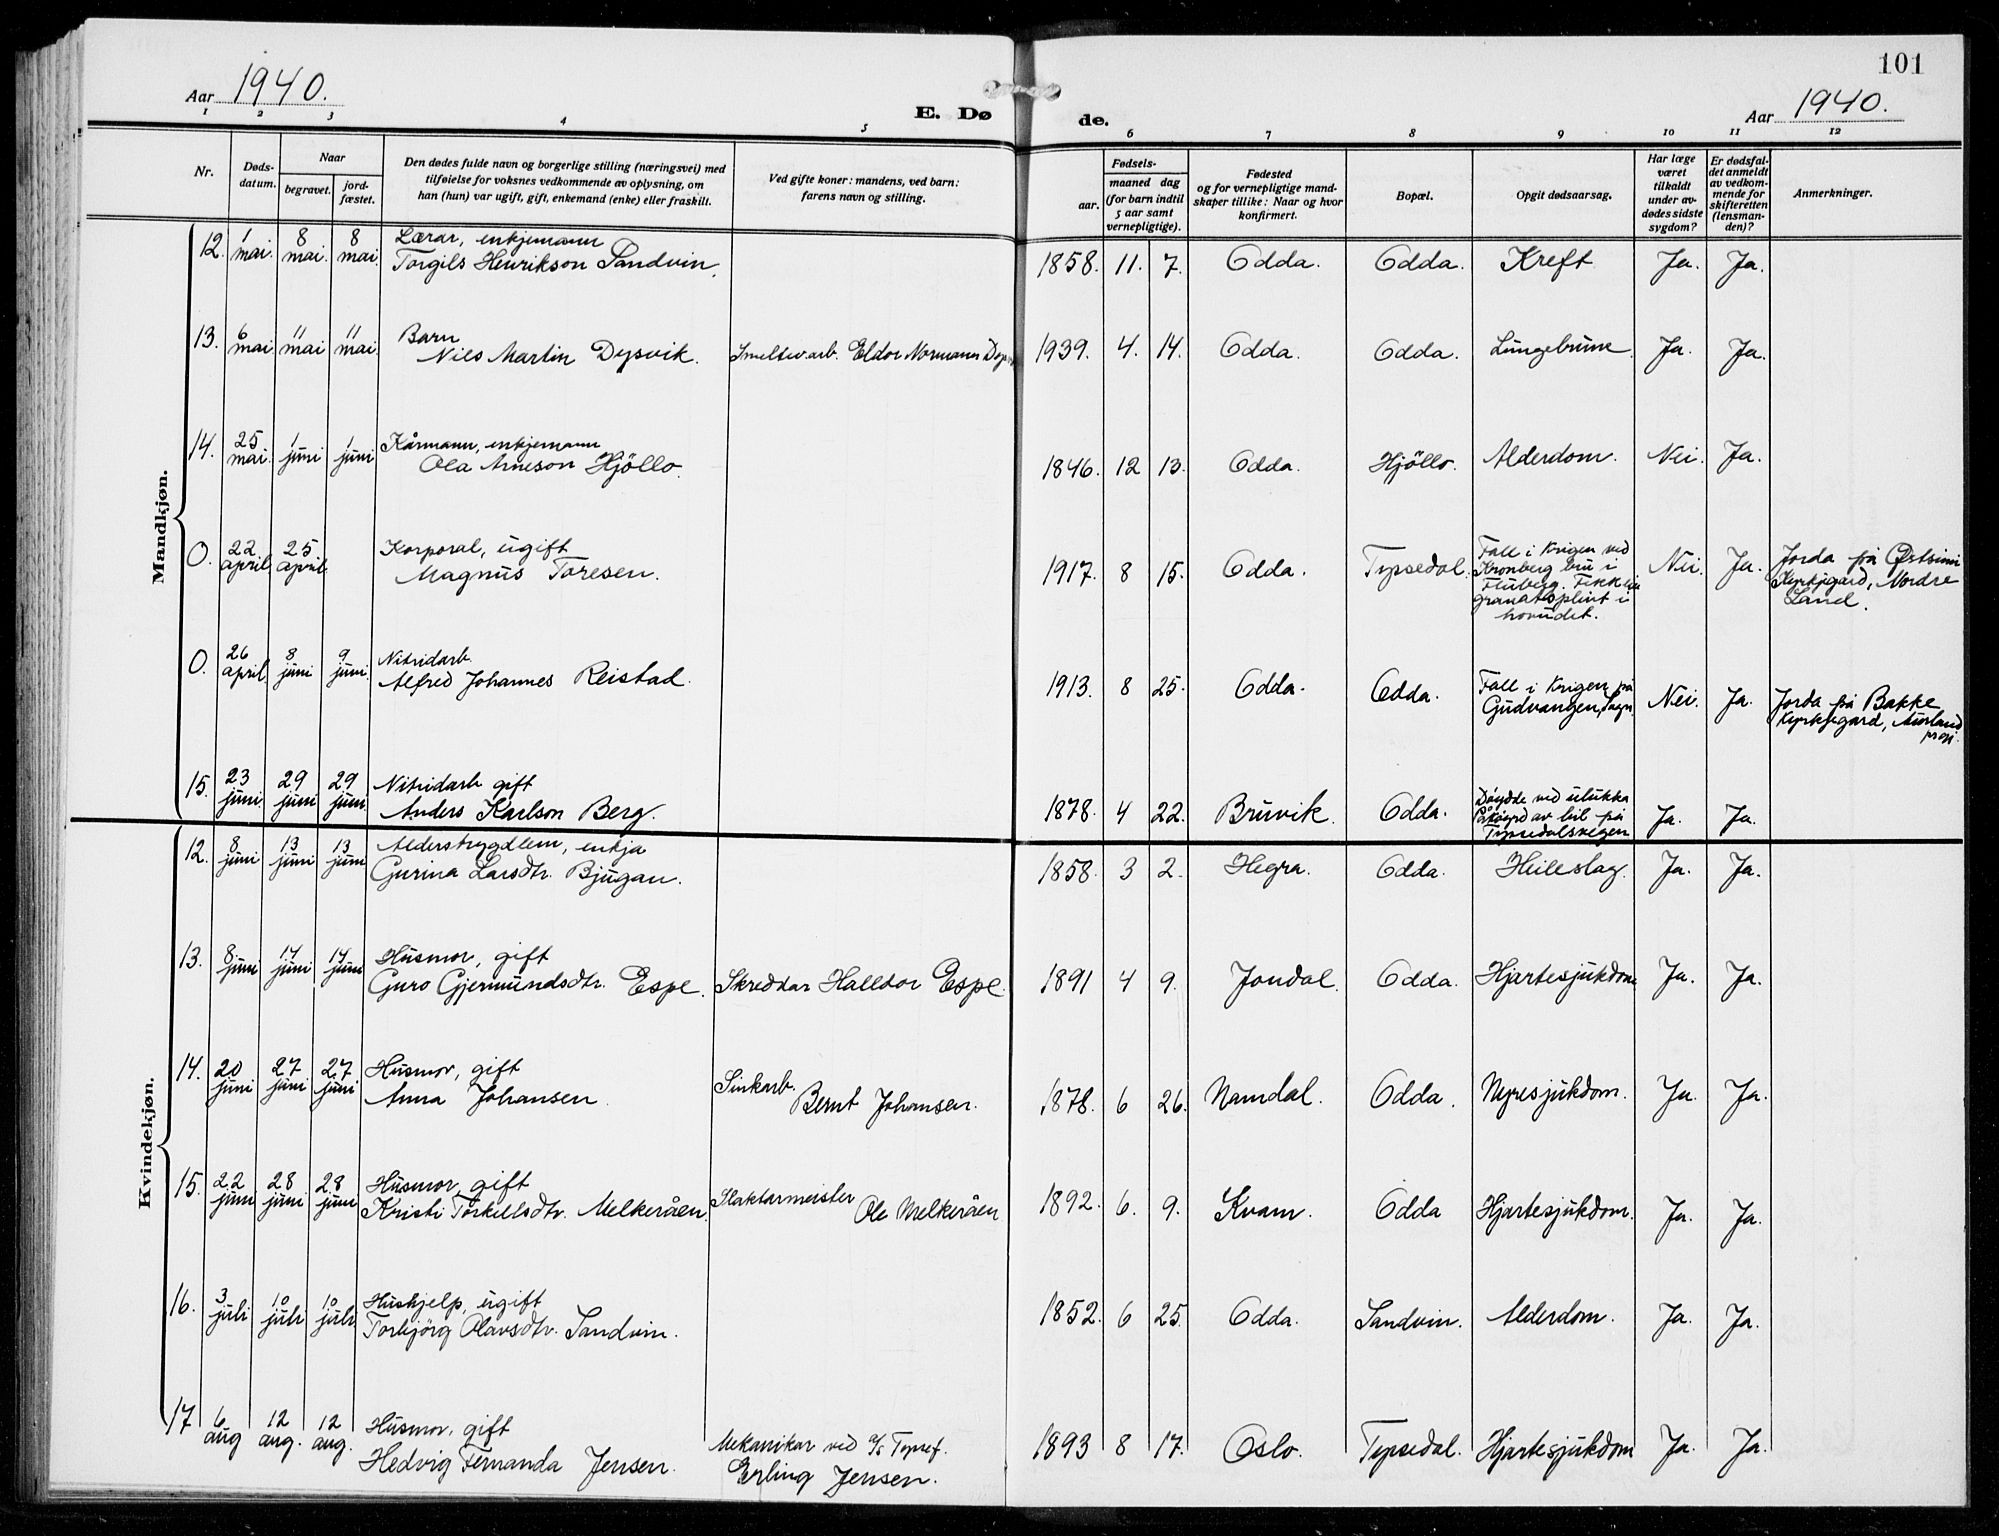 101
Aar 1940.
E. Dø de.
Aar 1940.
1 2 3 4 5 6 7 8 9 10 11 12
Nr.
Døds-
datum.
Naar
begravet.
jord-
fæstet.
Den dødes fulde navn og borgerlige stilling (næringsvei) med
tilføielse for voksnes vedkommende av oplysning, om
han (hun) var ugift, gift, enkemand (enke) eller fraskilt.
Ved gifte koner: mandens, ved barn:
farens navn og stilling.
Fødsels-
aar.
maaned dag
(for barn indtil
5 aar samt
vernepligtige).
Fødested
og for vernepligtige mand-
skaper tillike: Naar og hvor
konfirmert.
Bopæl.
Opgit dødsaarsag.
Har læge
været
tilkaldt
under av-
dødes sidste
sygdom?
Er dødsfal-
det anmeldt
av vedkom-
mende for
skifteretten
(lensman-
den)?
Anmerkninger.
Mandkjøn.
12. 1 mai. 8 mai. 8 mai.
Lærar, enkjemann
Torgils Henrikson Sandvin.
1858. 11. 7. Odda. Odda. Kreft Ja. Ja.
13. 6 mai 11 mai 11 mai.
Barn
Nils Martin Dysvik. Smeltev.arb. Eldor Normann
1939. 4. 14. Odda. Odda. Lungebrune. Ja. Ja.
14. 25 mai. 1 juni 1 juni
Kårmann, enkjemann
Ola Arneson Hjöllo.
1846. 12 13. Odda. Hjöllo. Alderdom. Nei. Ja.
0. 22 april 25 april
Korporal, ugift
Magnus Toresen.
1917. 8 15. Odda. Tyssedal.
Fall i krigen ved
Kronberg bru i
Fluberg. Fekk ein
granatsplint i
hovudet.
Nei. Ja.
Jorda på Østsinni
Kyrkjegard, Nordre
Land.
0. 26 april 8 juni 9 juni
Nitridarb.
Alfred Johannes Reistad.
1913. 8 25. Odda. Odda.
Fall i krigen på
Gudvangen, Sogn.
Nei. Ja.
Jorda på Bakke
Kyrkjegard, Aurland
15. 23 juni. 29 juni 29 juni
Nitridarb gift
Anders Karlson Berg.
1878. 4 22. Bruvik. Odda.
Döydde ved ulukka
Påköyrd av bil på
Tyssedalsvegen
Ja. Ja.
Kvindekjøn.
12. 8 juni 13 juni 13 juni
Alderstrygdlem, enkja
Gurina Larsdtr. Bjugan.
1858. 3 2. Hegra. Odda. Heileslag. Ja. Ja.
13. 8 juni 14 juni 14 juni
Husmor, gift
Guro Gjermundsdtr. Espe. Skreddar Halldor Espe.
1891 4 9. Jondal. Odda. Hjartesjukdom Ja. Ja.
14. 20 juni 27 juni 27 juni
Husmor, gift
Anna Johansen. Sinkarb. Bernt Johansen.
1878. 6 26. Namdal. Odda. Nyresjukdom. Ja. Ja.
15. 22 juni 28 juni 28 juni
Husmor, gift
Kristi Torkellsdtr. Melkeråen. Slaktarmeister Ole Melkeråen
1892. 6. 9. Kvam. Odda Hjartesjukdom. Ja. Ja.
16. 3 juli 10 juli 10 juli
Hushjelp, ugift
Torbjörg Olavsdtr. Sandvin.
1852. 6 25. Odda. Sandvin. Alderdom. Ja. Ja.
17 6 aug 12 aug. 12 aug.
Husmor, gift
Hedvig Fernanda Jensen. Mekanikar ved A/S Tyssef.
Erling Jensen.
1893 8 17. Oslo. Tyssedal. Hjartesjukdom Ja. Ja.